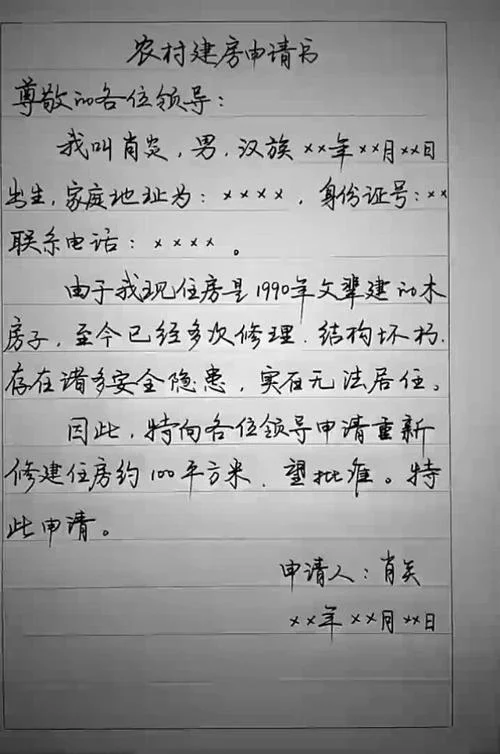 农村建房申请书
尊敬的各位领导:
我叫肖炎,男,汉族××年××月××日
出生,家庭地址为:××××,身份证号:××
联系电话:××××。
由于我现住房是1990年父辈建的木
房子,至今已经多次修理.结构坏朽.
存在诸多安全隐患,实在无法居住。
因此,特向各位领导申请重新
修建住房约100平方米.望批准。特
此申请。
申请人:肖炎
××年××月××日